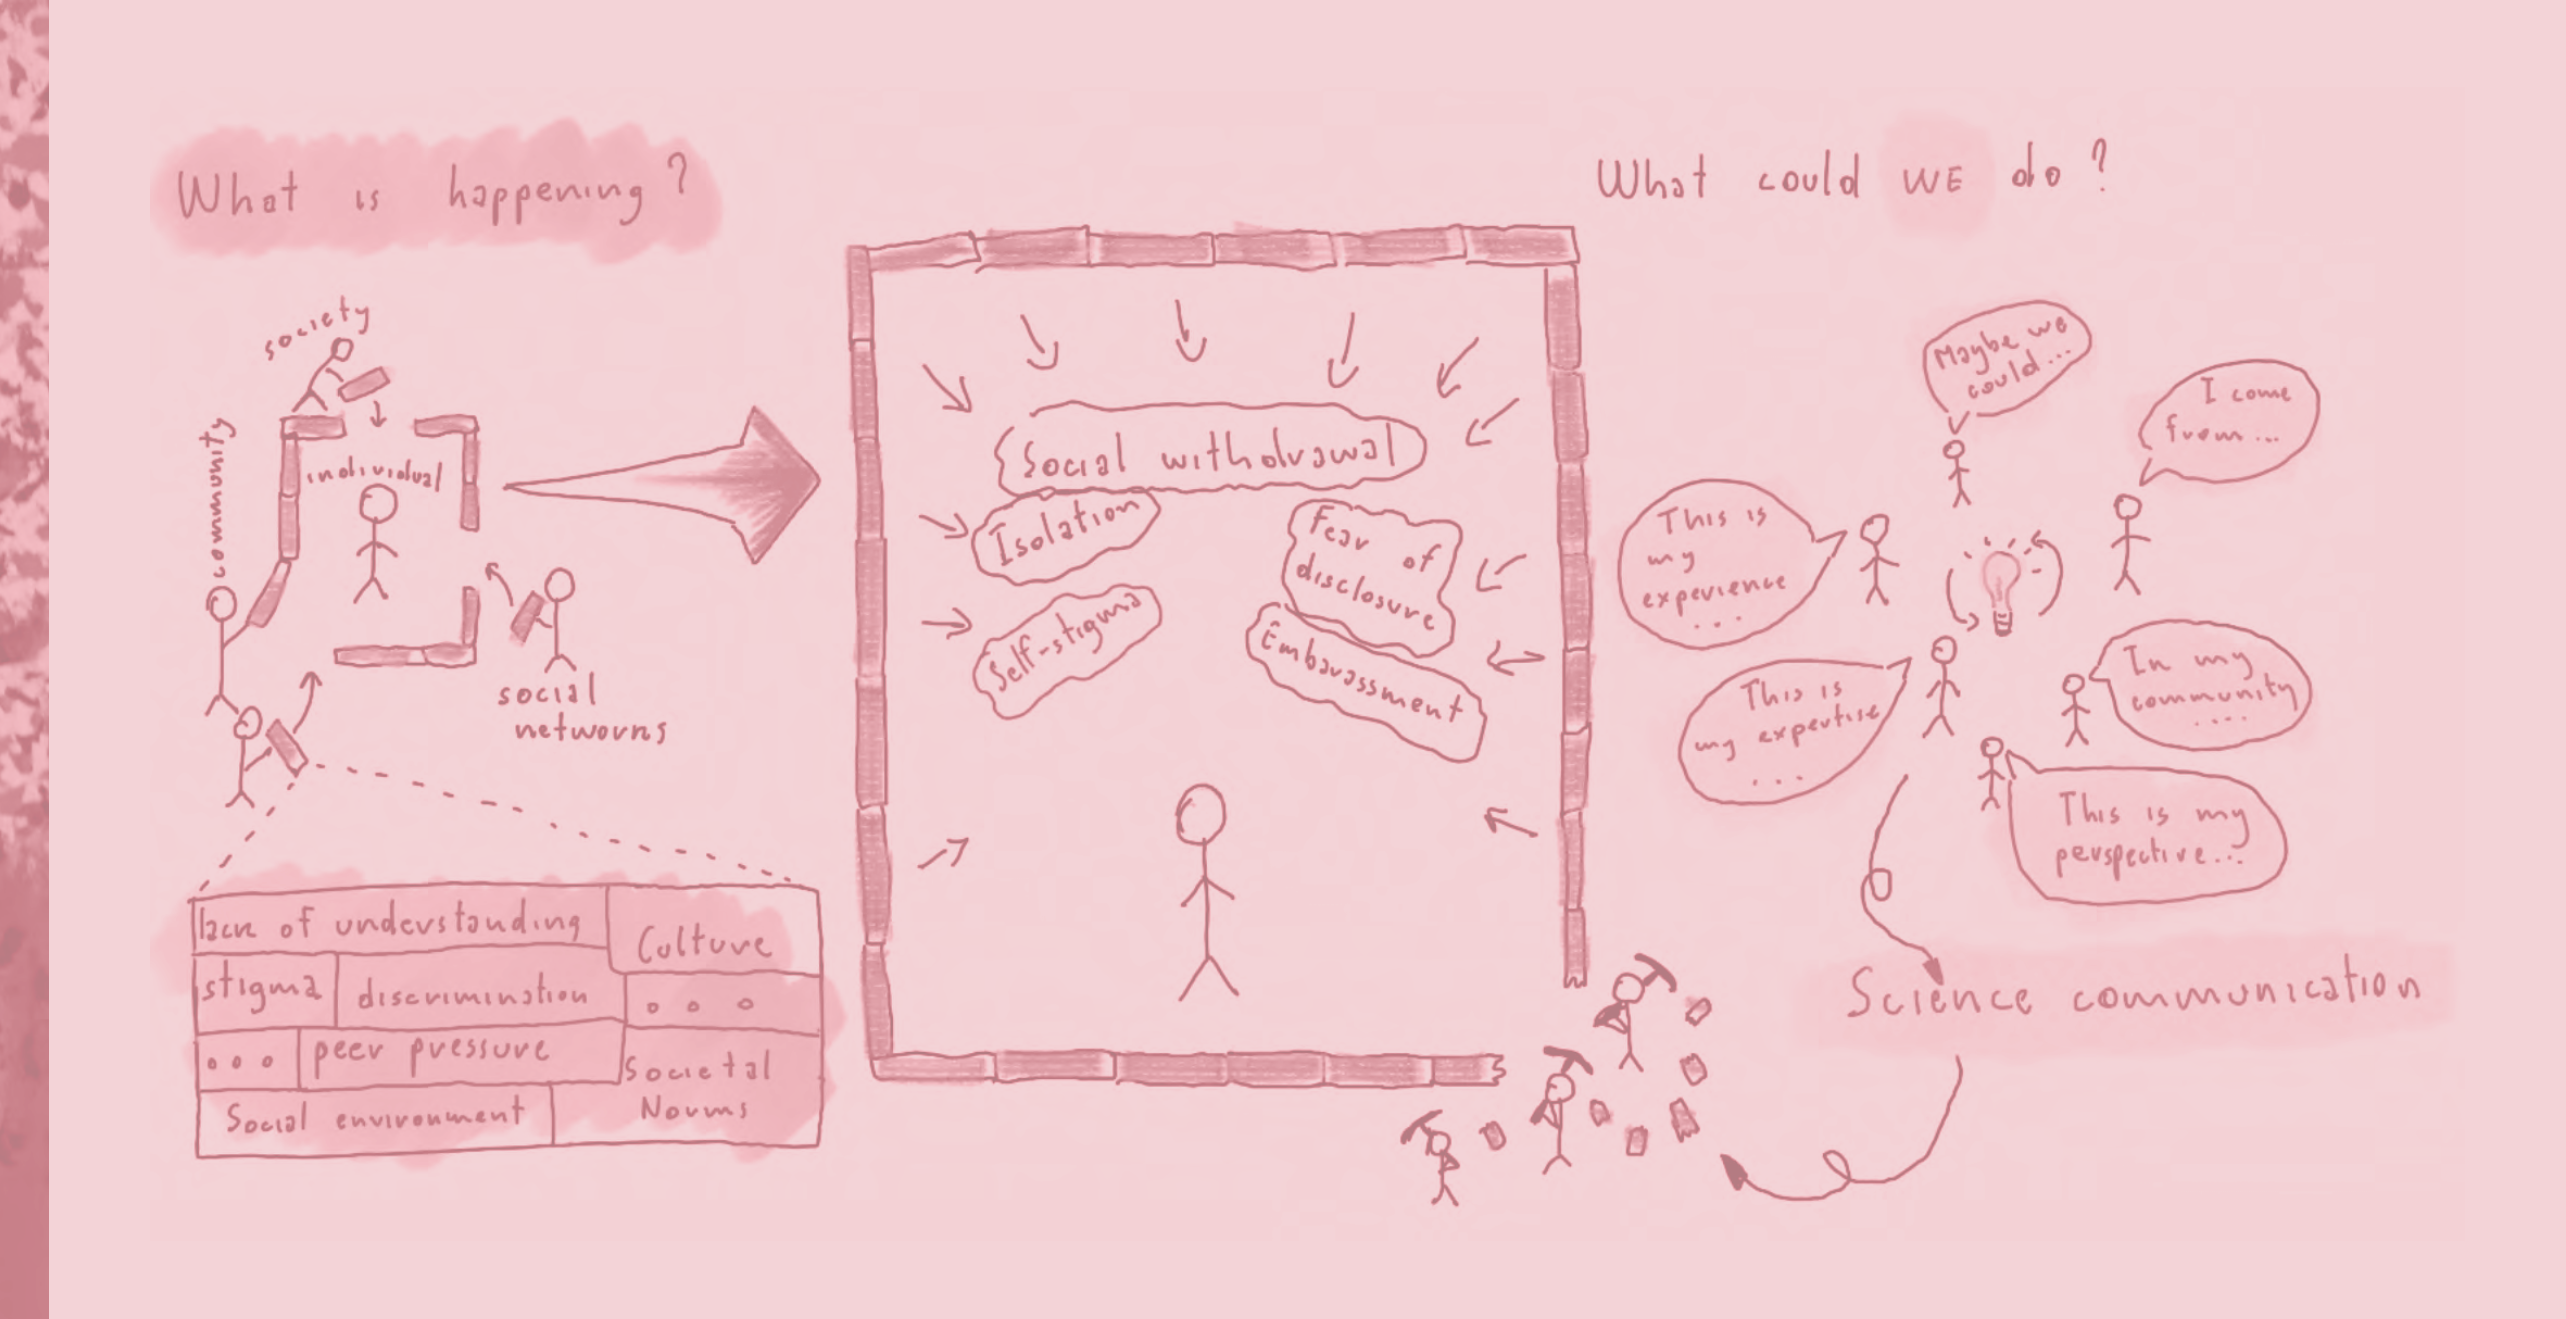 What is happening?
society
community
individual
social
networks
lack of understanding
Culture
stigma
discrimination
o o o
o o o
peer pressure
Societal
Norms
Social environment
Social withdrawal
Isolation
Self-stigma
Fear
of
disclosure
Embarassment
What could WE do?
Maybe we
could...
I come
from...
This is
my
experience
...
This is
my expertise
...
In my
community
....
This is my
perspective...
Science communication